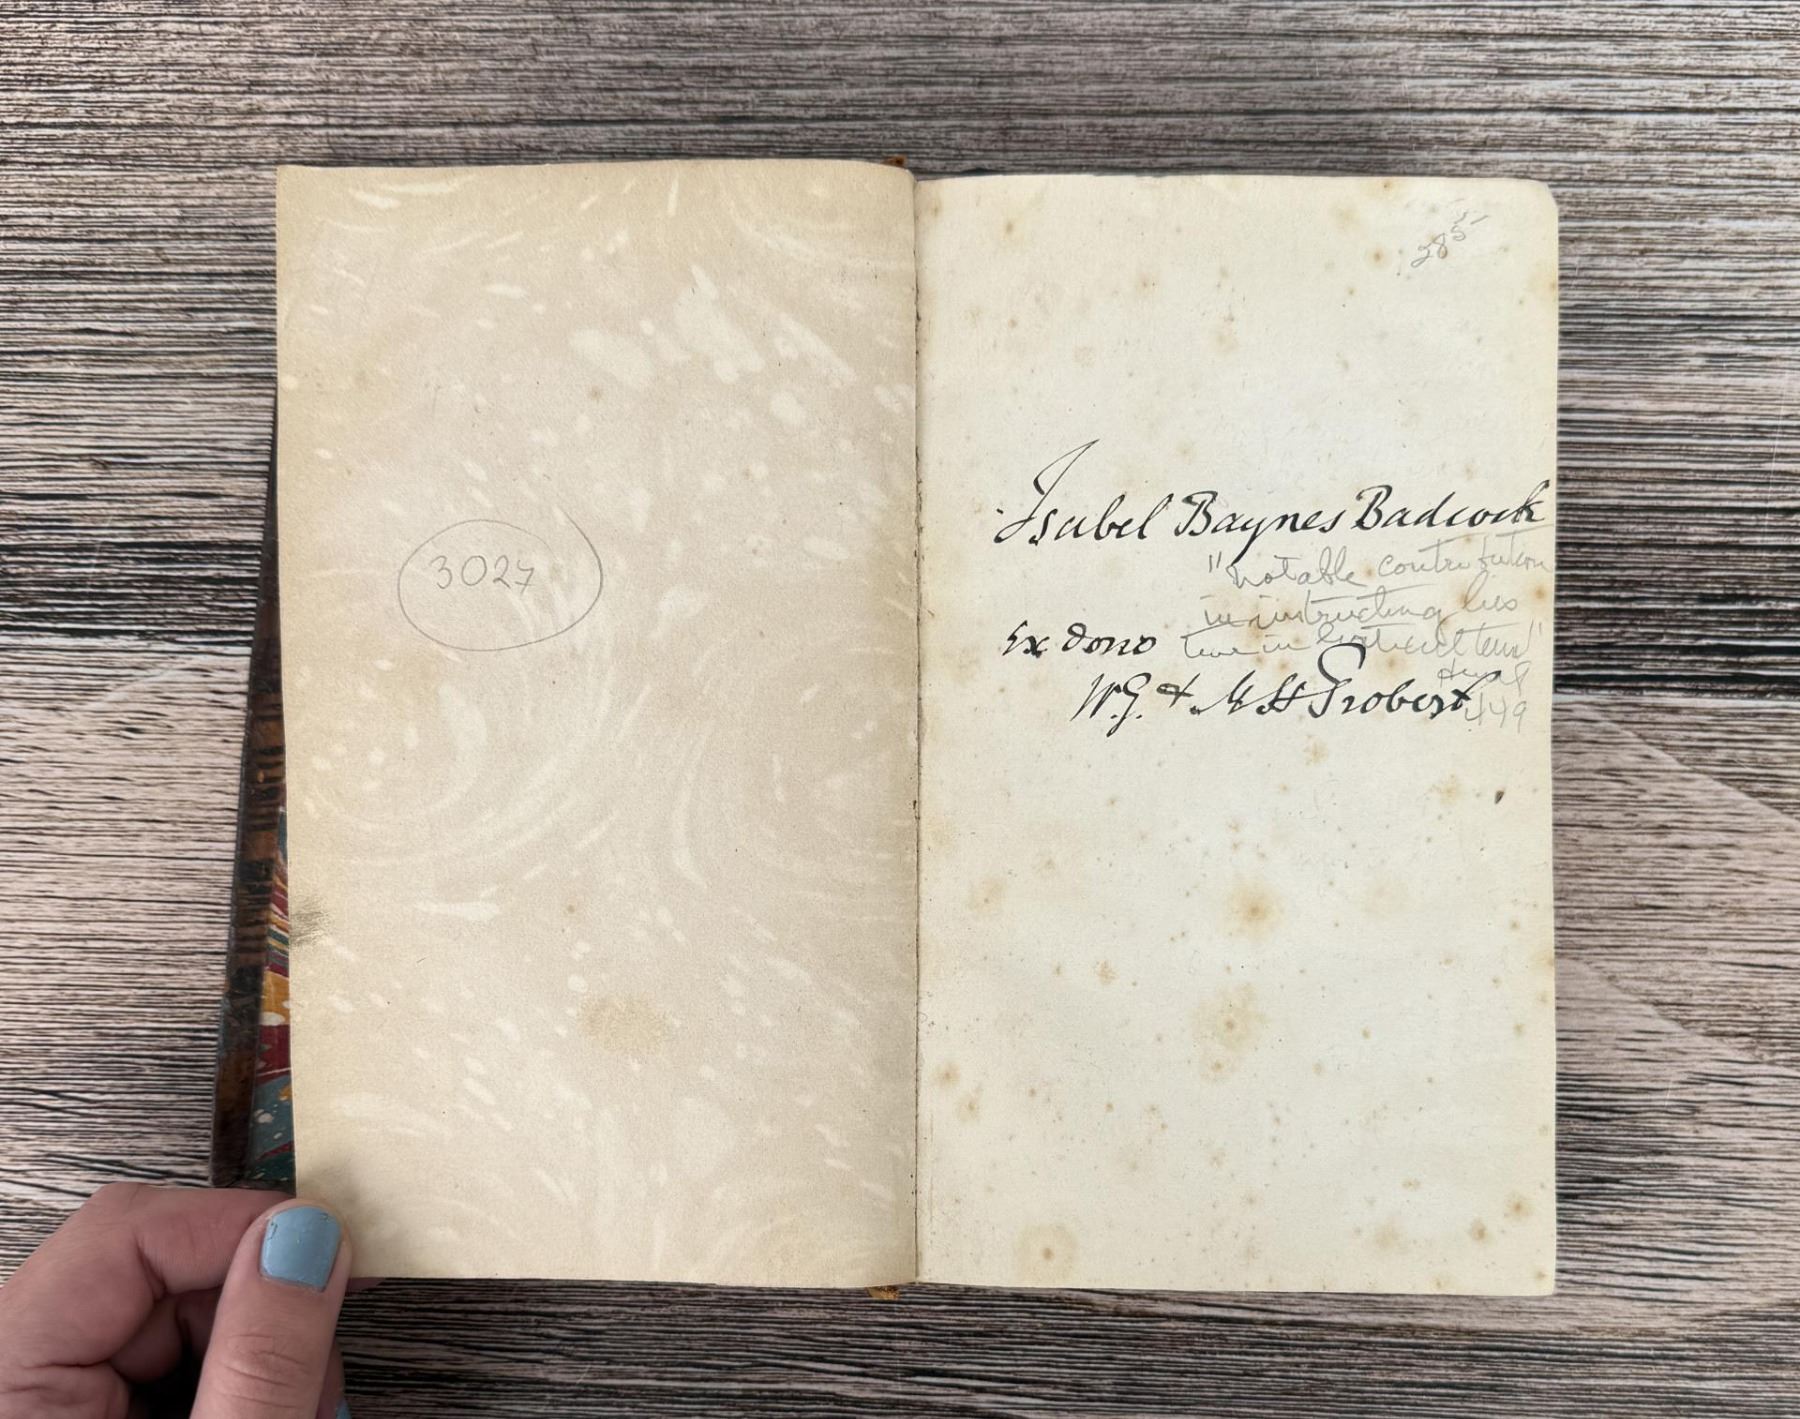 3027
285
Isabel Baynes Badcock
"notable contribution
in instructing his
time in
Ex dono
W.G. & M H Grobert
449